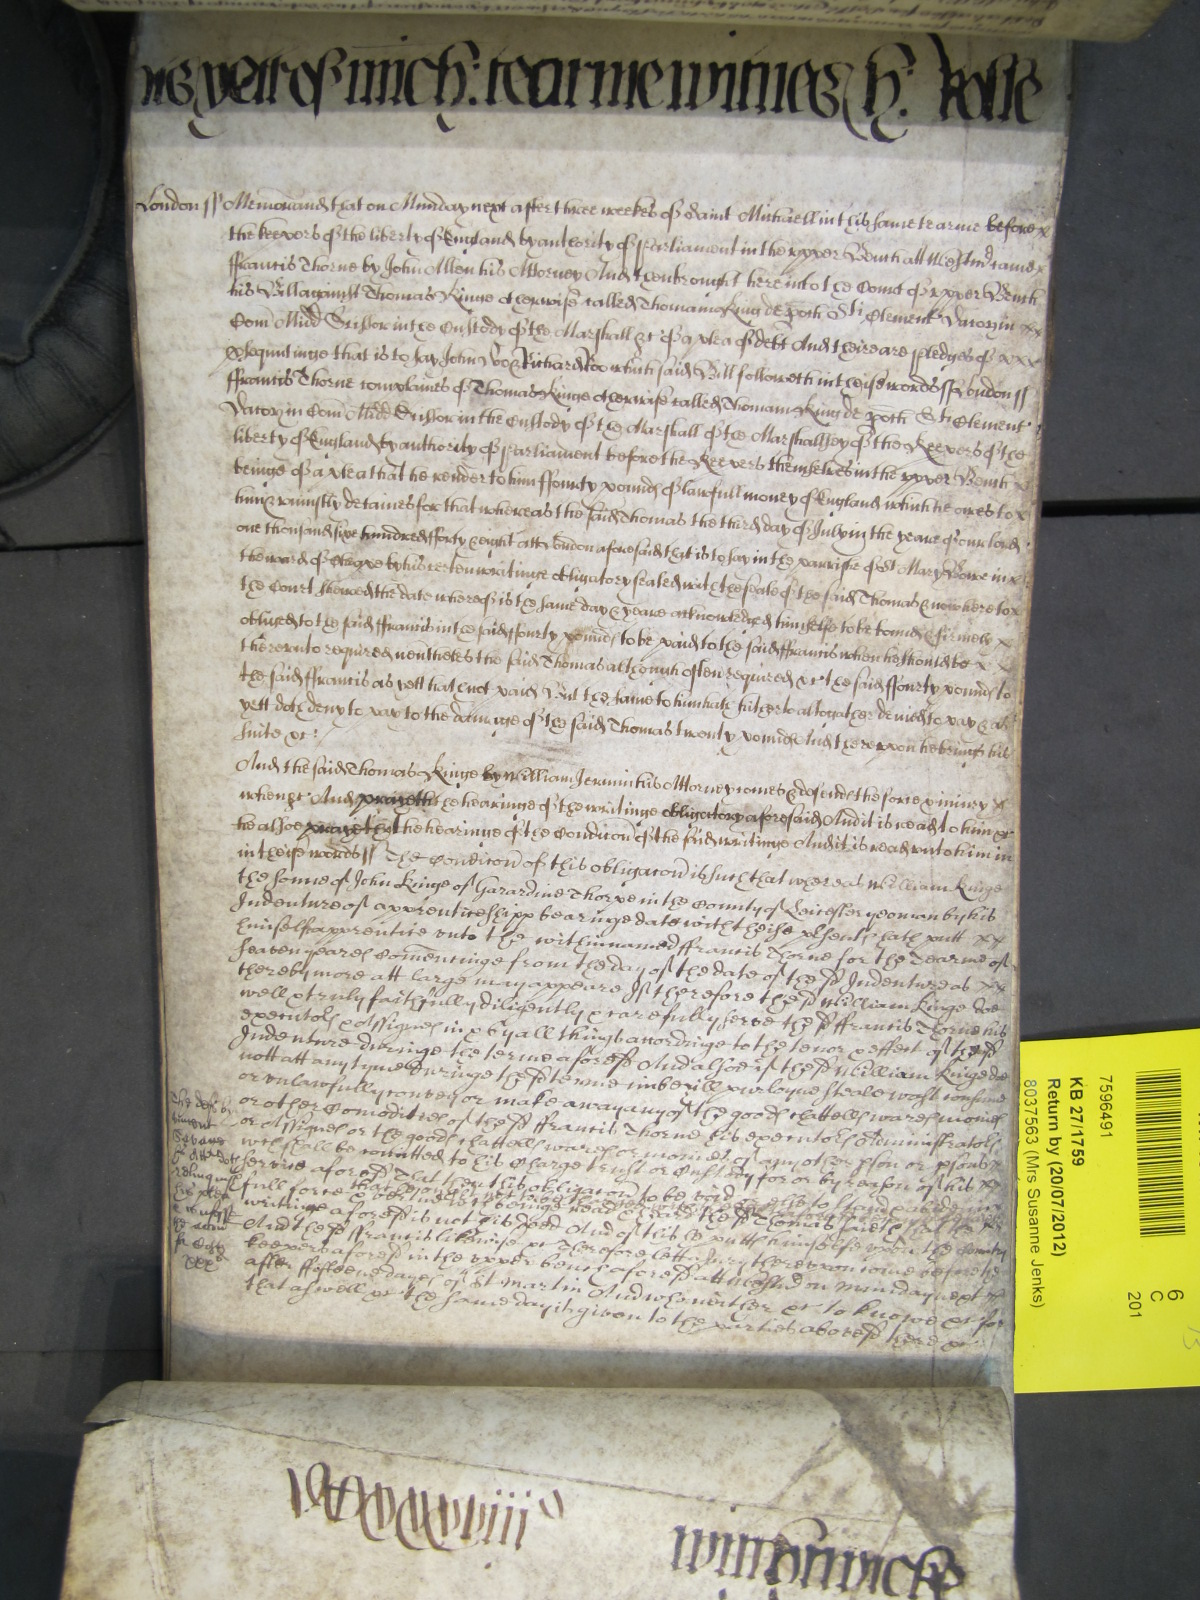 yeare of mich: tearme witnes H: Rolle
London ss Memorand that on Munday next after three weekes of Saint Michaell in this same tearme before
the keepers of the liberty of England by authority of Parliament in the upper Bench att Westmr came
ffrancis Thorne by John Allen his Attorney And then brought here into the Court of upper Bench
his Bill against Thomas Kinge otherwise called Thomam King de poch Sti Clement Dacorum
Com Midd Scissor in the Custody of the Marshall &c of a plea of debt And there are pledges of
psequutinge that is to say John Doo & Richard Roo which said Bill followeth in theise words ss London ss
ffrancis Thorne complaines of Thomas Kinge otherwise called Thomam King de poch Sti Clement
Dacorum in Com Midd Scissor in the Custody of the Marshall of the Marshallsey of the Keepers of the
liberty of England by authority of Parliament before the Keepers themselves in the upper Bench
beinge of a plea that he render to him ffourty pounds of lawfull money of England which he owes to
him & uniustly detaines for that whereas the said Thomas the third day of July in the yeare of our lord
one thousand six hundred fforty & eight att London aforesaid that is to say in the parrishe of St Mary Bowe in
the ward of Cheape by his certen writinge obligatory sealed with the seale of the said Thomas & now here to
the Court shewed the date whereof is the same day & yeare acknowledged himselfe to be bound & firmely
obliged to the said ffrancis in the said ffourty pounds to be paid to the said ffrancis when he should be
thereunto required neverthelesse the said Thomas although often required &c the said ffourty pounds to
the said ffrancis as yett hath not paid But the same to him hath hitherto altogather denied to pay & as
yett doth deny to pay to the damage of the said Thomas twenty pounds And thereupon he brings his
suite &c:
And the said Thomas Kinge by William Jermin his Attorney comes & defends the force & iniury
when &c And prayeth the hearinge of the writinge obligatory aforesaid And it is read to him &c
he alsoe prayeth the hearinge of the Condicon of the said writinge And it is read unto him in
in theise words ss The condicon of this obligacon is such that whereas William Kinge
the sonne of John Kinge of Garardine Thorpe in the County of Leicester yeoman by his
Indenture of apprenticeshipp bearinge date with theise psents hath putt
himselfe apprentice unto the within named ffrancis Thorne for the Tearme of
seaven yeares comencinge from the day of the date of the sd Indenture as
thereby more att large may appeare If therefore the sd William Kinge doe
well & truly faithfully diligently & carefully serve the sd ffrancis Thorne his
executors & assignes in & by all things accordinge to the tenor & effect of the sd
Indenture duringe the terme aforesd And alsoe if the sd William Kinge doe
nott att any tyme duringe the sd terme imbezill purloyne steale wast consume
or unlawfully convey or make away any of the goods chattells wares monies
or other Comodities of the sd ffrancis Thorne his executors Administrators
or Assignes or the goods chattells wares or monies of any other pson or psons
wch shall be comitted to his Charge trust or Custody for or by reason of his
service aforesd That then this obligacon to be void or else to stand & abide in
full force
writinge aforesd is not his deed And of this he putts himselfe upon the Country
And the sd ffrancis likewise &c Therefore lett a Jury thereupon come before the
keepers aforesd in the upper bench aforesd att Westmr on Munday next
after ffifteene dayes of St Martin And who neither &c to knowe &c for
that aswell &c the same day is given to the parties aforesd there &c
7596491
KB 27/1759
Return by (20/07/2012)
8037563 (Mrs Susanne Jenks)
6
C
201